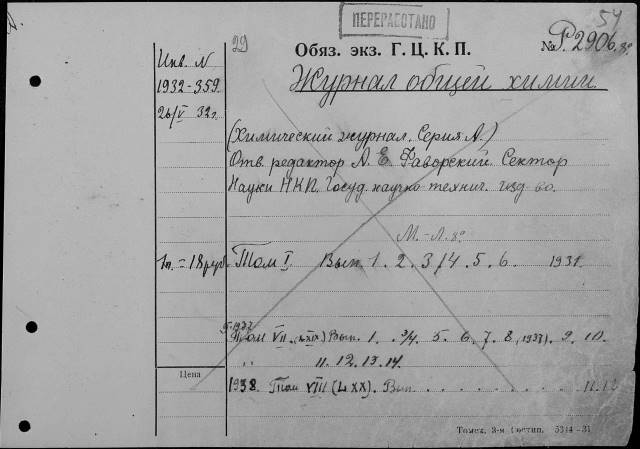 ПЕРЕРАБОТАНО
54
29
Обяз. экз. Г. Ц. К. П. № Р.2906.8°
Инв. N
1932-359
26/V 32г.
Журнал общей химии
(Химический журнал. Серия А.)
Отв. редактор А. Е. Фаворский. Сектор
Науки НКП. Госуд. научно-технич. изд-во.
М.-Л. 8°
1п. = 18 руб. Том I Вып. 1. 2. 3/4. 5. 6. 1931.
1937
Том VII (LXIX) Вып. 1. 3/4 5. 6. 7. 8 (1937). 9. 10.
" 11. 12. 13. 14.
Цена
1938. Том VIII (LXX). Вып. . . . . . . . . 11.12
Томск. 3-я Гостип. 5314-31